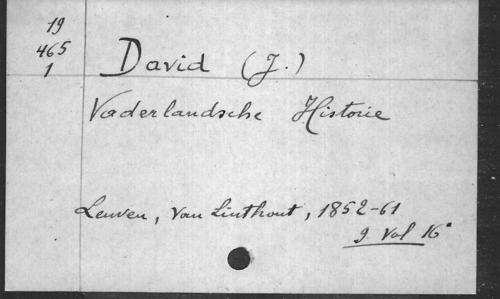 19
465
1
David (J.)
Vaderlandsche Historie
Leuven, Van Linthout, 1852-61
9 Vol 16°